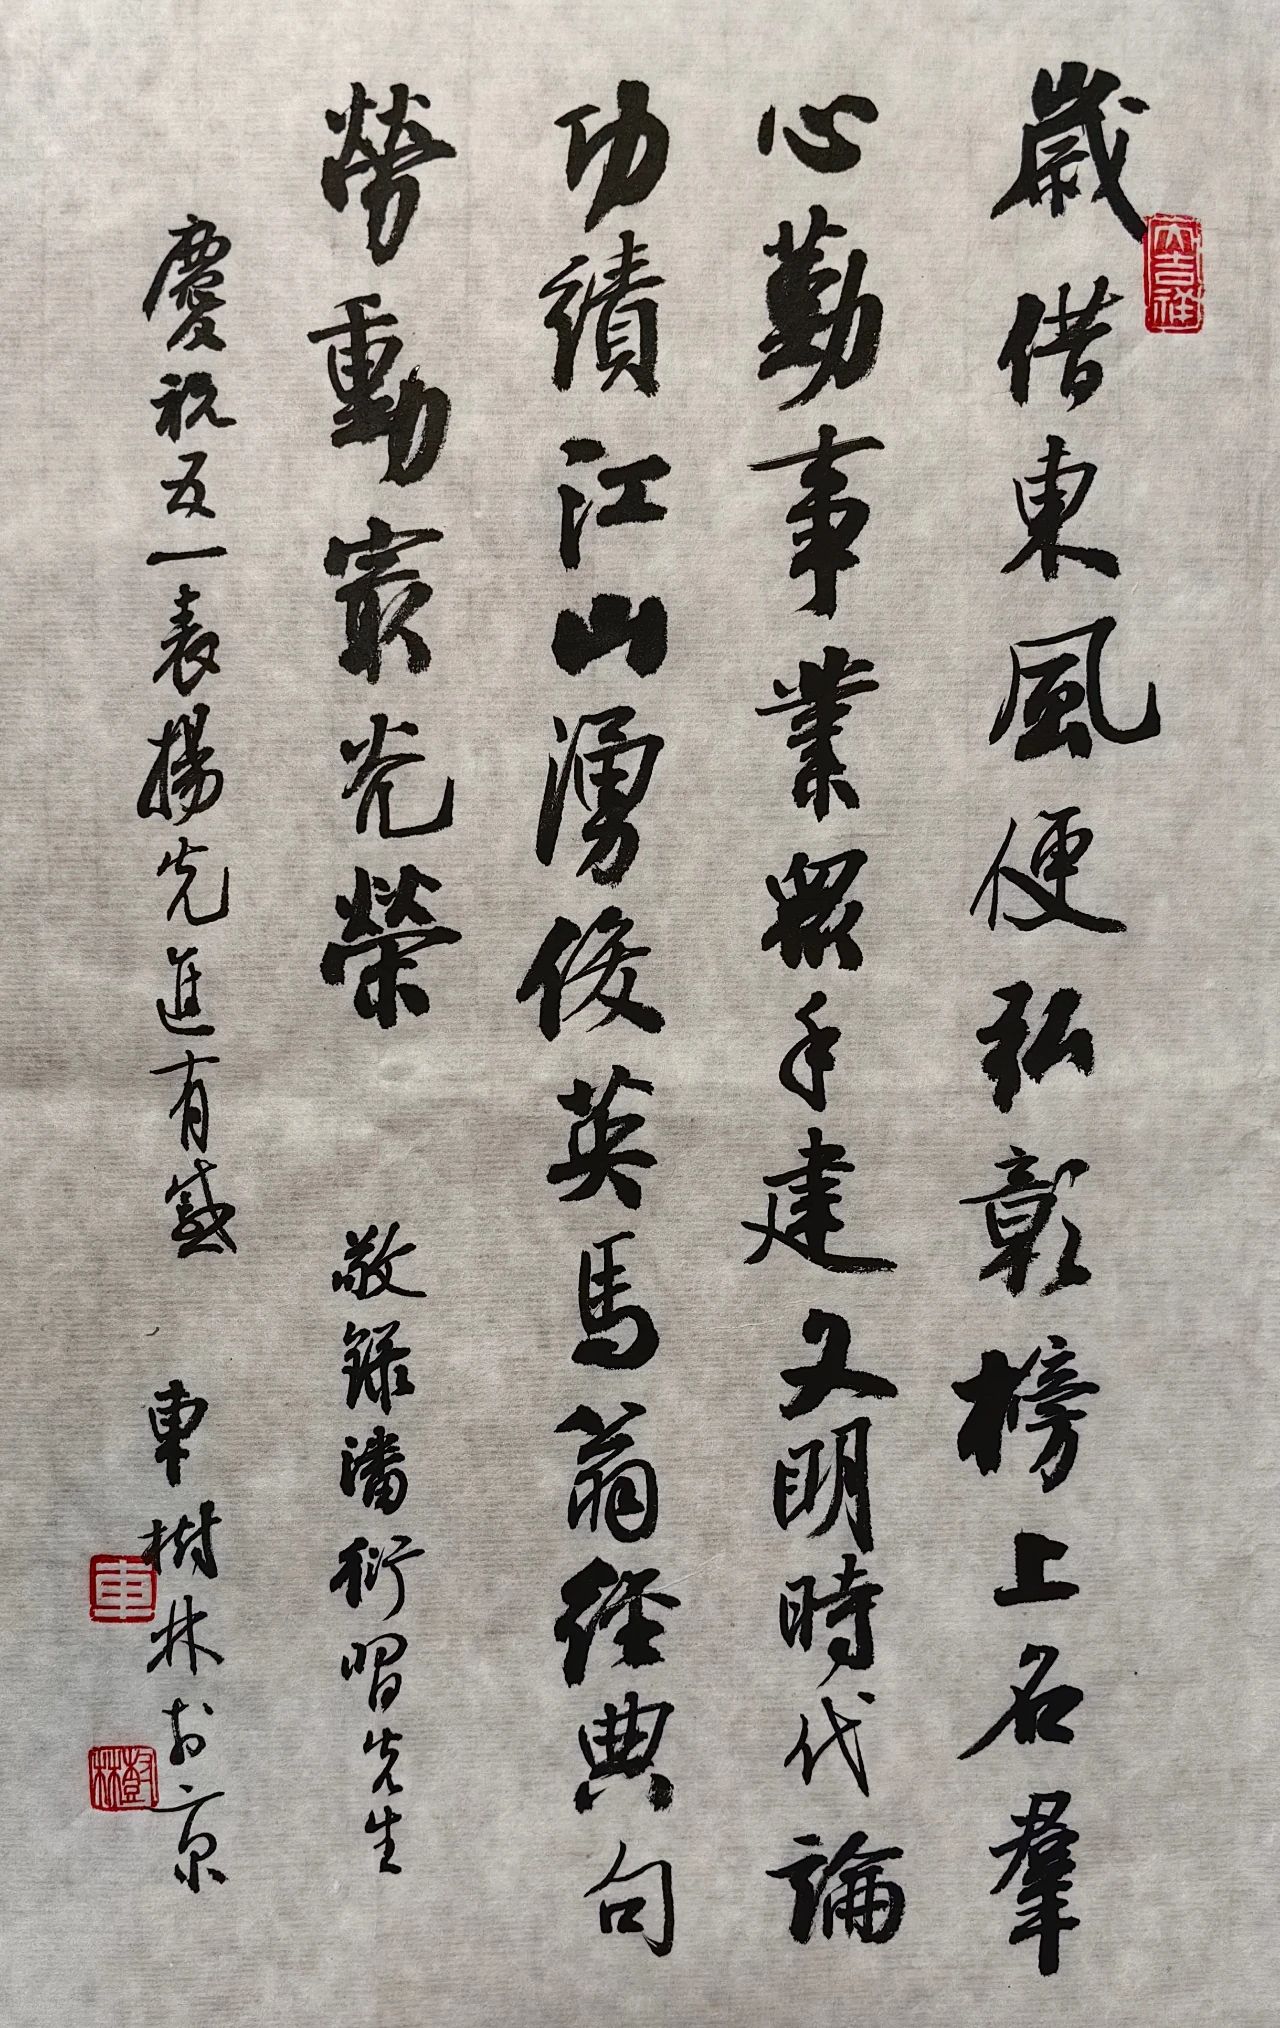 歲借東風便弘彰榜上名羣
心勤事業眾手建文明時代論
功績江山湧俊英馬翁經典句
勞動最光榮
敬錄潘衍習先生
慶祝五一表揚先進有感
車樹林於京
大吉祥
車
樹林